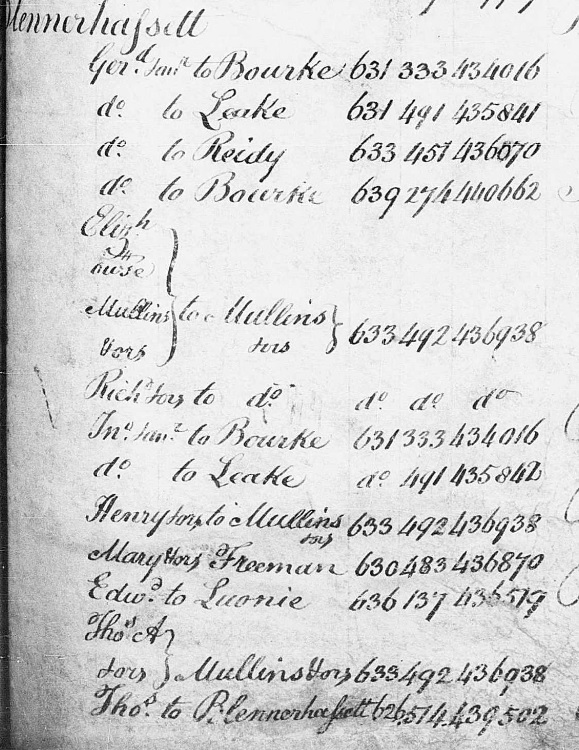 Blennerhassett
Gerd Junr to Bourke 631 333 434016
do to Leake 631 491 435841
do to Reidy 633 457 436070
do to Bourke 639 274 440662
Elizh
Mullins to Mullins 633 492 436938
ors ors
Richd ors to do do do do
Jno Junr to Bourke 631 333 434016
do to Leake do 491 435842
Henry ors to Mullins ors 633 492 436938
Mary ors Freeman 630 483 436870
Edwd to Luonie 636 137 436579
Thos A
ors Mullins ors 633 492 436938
Thos to Blennerhassett 626 514 439502